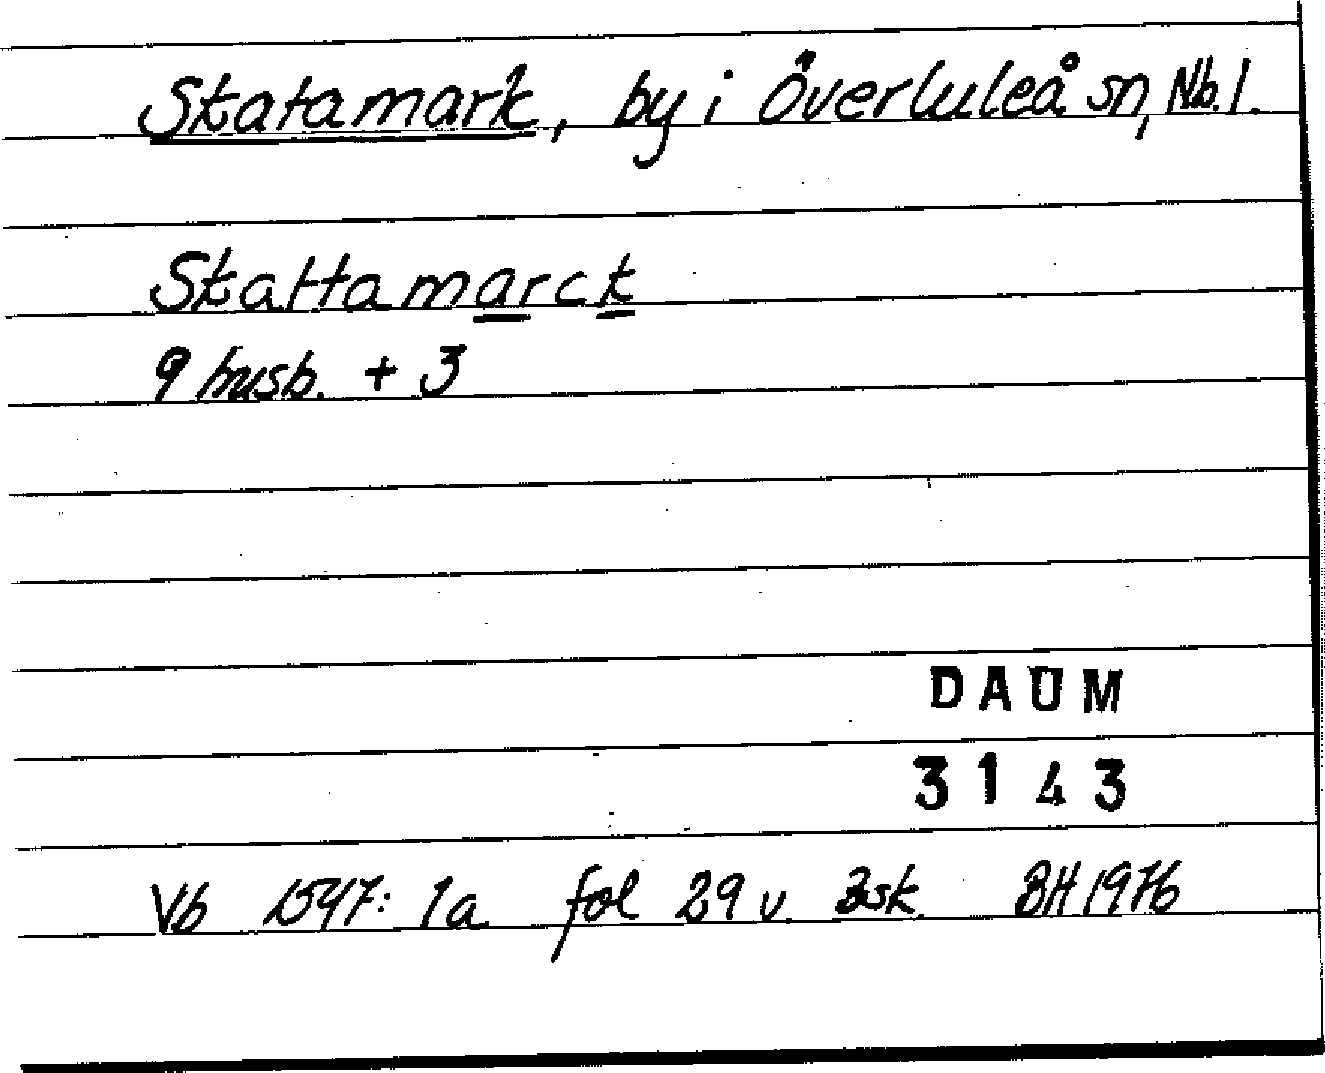 Skatamark, by i Överluleå sn, Nb. l.
Skattamarck
9 husb. + 3
DAUM
3143
Vb 1547: 1a fol 29 v. Bsk BH 1976